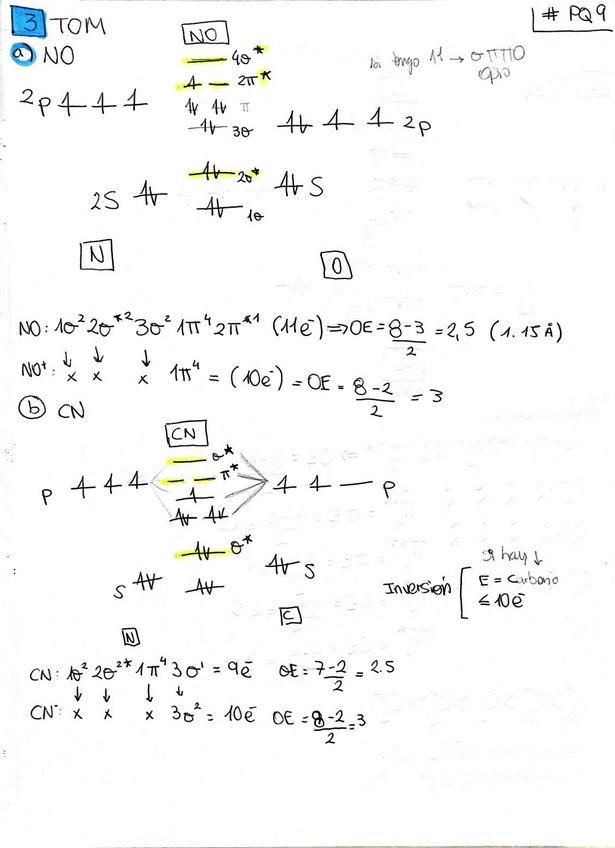 3 TOM
# PQ9
a) NO
NO
4σ*
si tengo 11 → σππσ
2π*
2p
π
3σ
2p
2σ*
2S
S
1σ
N
O
NO: 1σ² 2σ*² 3σ² 1π⁴ 2π*¹ (11e⁻) ⇒ OE = 8-3/2 = 2,5 (1.15 Å)
NO⁺: ↓ x ↓ x ↓ x 1π⁴ = (10e⁻) = OE = 8-2/2 = 3
b) CN
CN
σ*
π*
p
p
σ*
S
S
si hay ↓
Inversión [ E = Carbono
≤ 10e⁻
N
C
CN: 1σ² 2σ²* 1π⁴ 3σ¹ = 9e⁻ OE = 7-2/2 = 2.5
↓ ↓ ↓ ↓
CN⁻: x x x 3σ² = 10e⁻ OE = 8-2/2 = 3